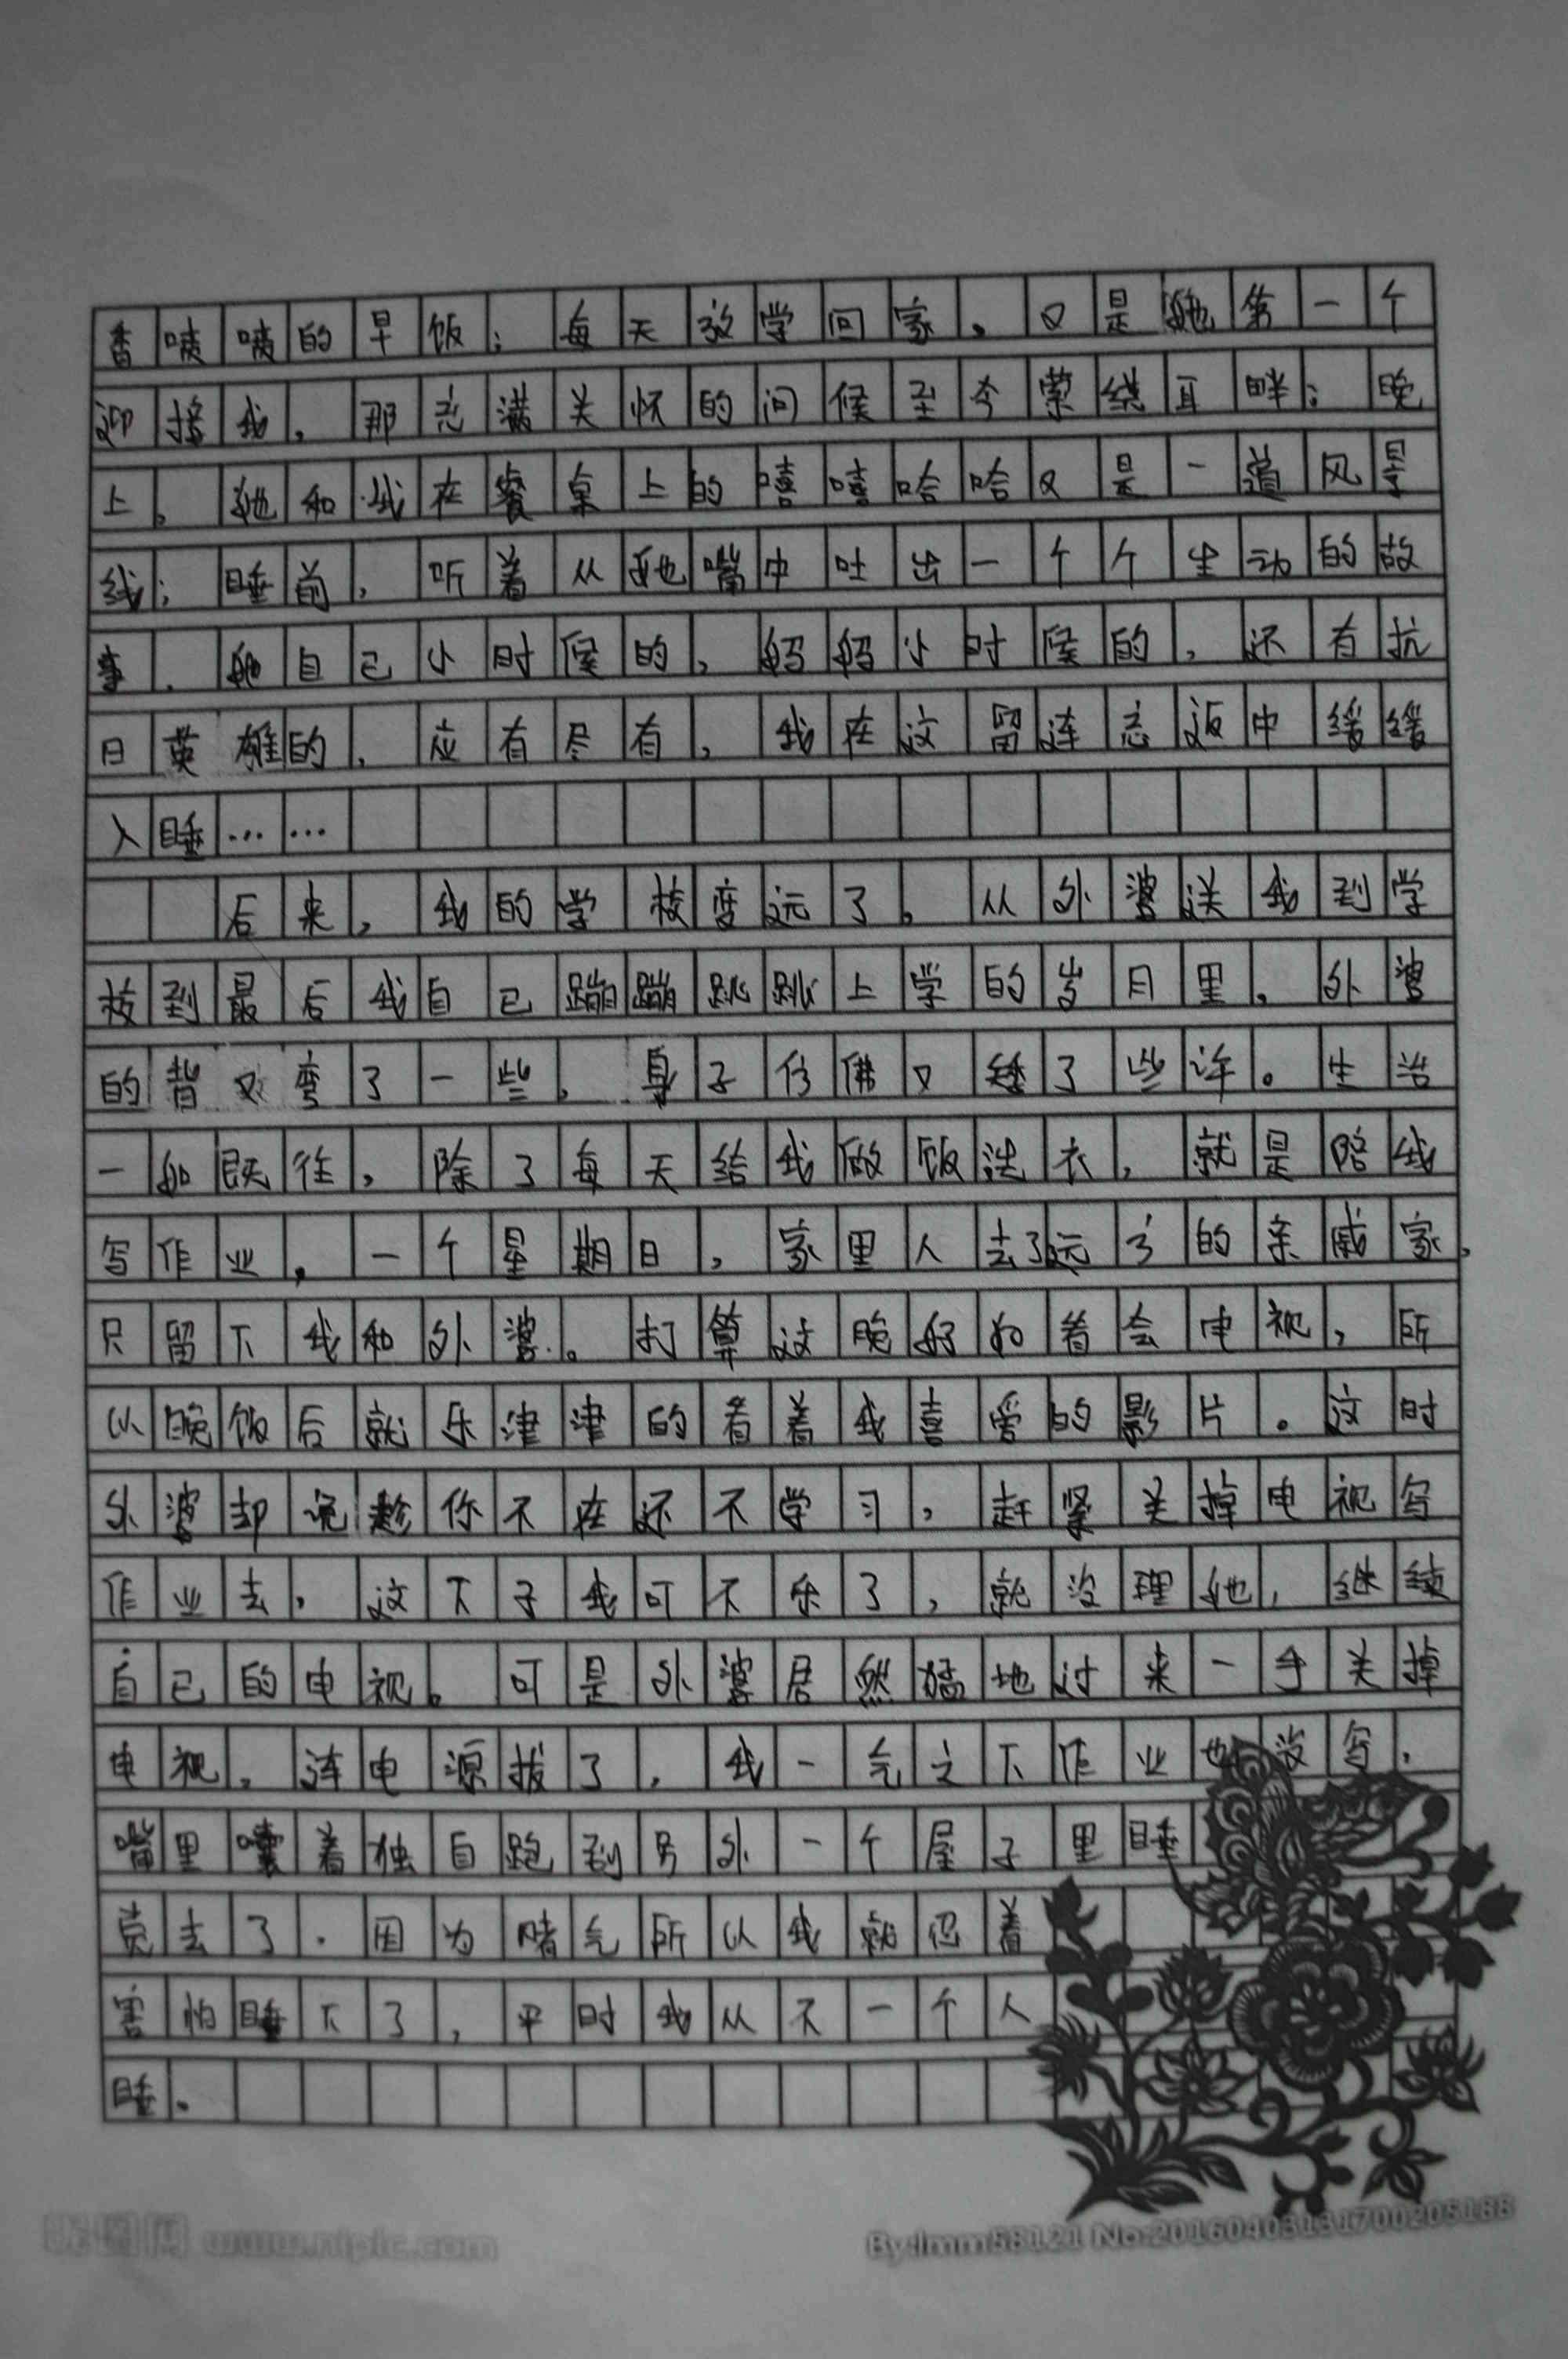 香喷喷的早饭；每天放学回家，又是她第一个
迎接我，那充满关怀的问候至今萦绕耳畔；晚
上，她和我在餐桌上的嘻嘻哈哈又是一道风景
线；睡前，听着从她嘴中吐出一个个生动的故
事，她自己小时候的，妈妈小时候的，还有抗
日英雄的，应有尽有，我在这留连忘返中缓缓
入睡……
后来，我的学校变远了。从外婆送我到学
校到最后我自己蹦蹦跳跳上学的岁月里，外婆
的背又弯了一些，身子仿佛又矮了些许。生活
一如既往，除了每天给我做饭洗衣，就是陪我
写作业。一个星期日，家里人去了远方的亲戚家，
只留下我和外婆。打算这晚好好看会电视，所
以晚饭后就乐津津的看着我喜爱的影片。这时
外婆却说趁你不在还不学习，赶紧关掉电视写
作业去，这下子我可不乐了，就没理她，继续
自己的电视。可是外婆居然猛地过来一手关掉
电视，连电源拔了，我一气之下作业也没写，
嘴里嚷着独自跑到另外一个屋子里睡
觉去了。因为赌气所以我就忍着
害怕睡下了，平时我从不一个人
睡。
www.nipic.com
By:lmm58121 No:20160403131700205188